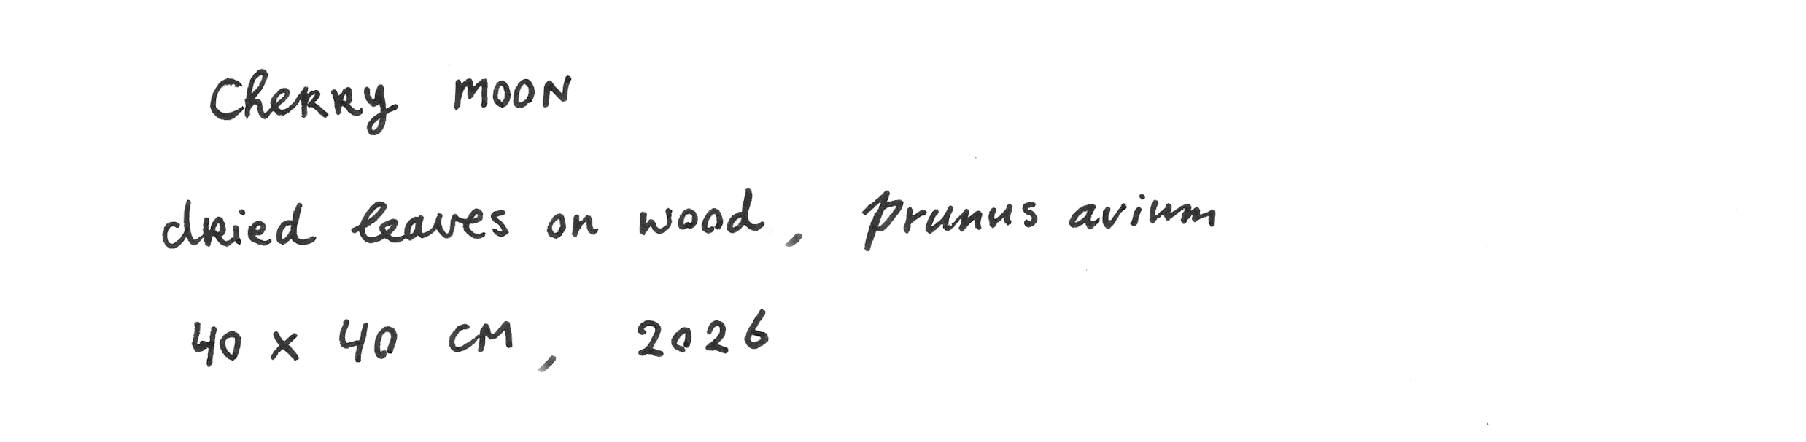 Cherry moon
dried leaves on wood, prunus avium
40 x 40 cm, 2026